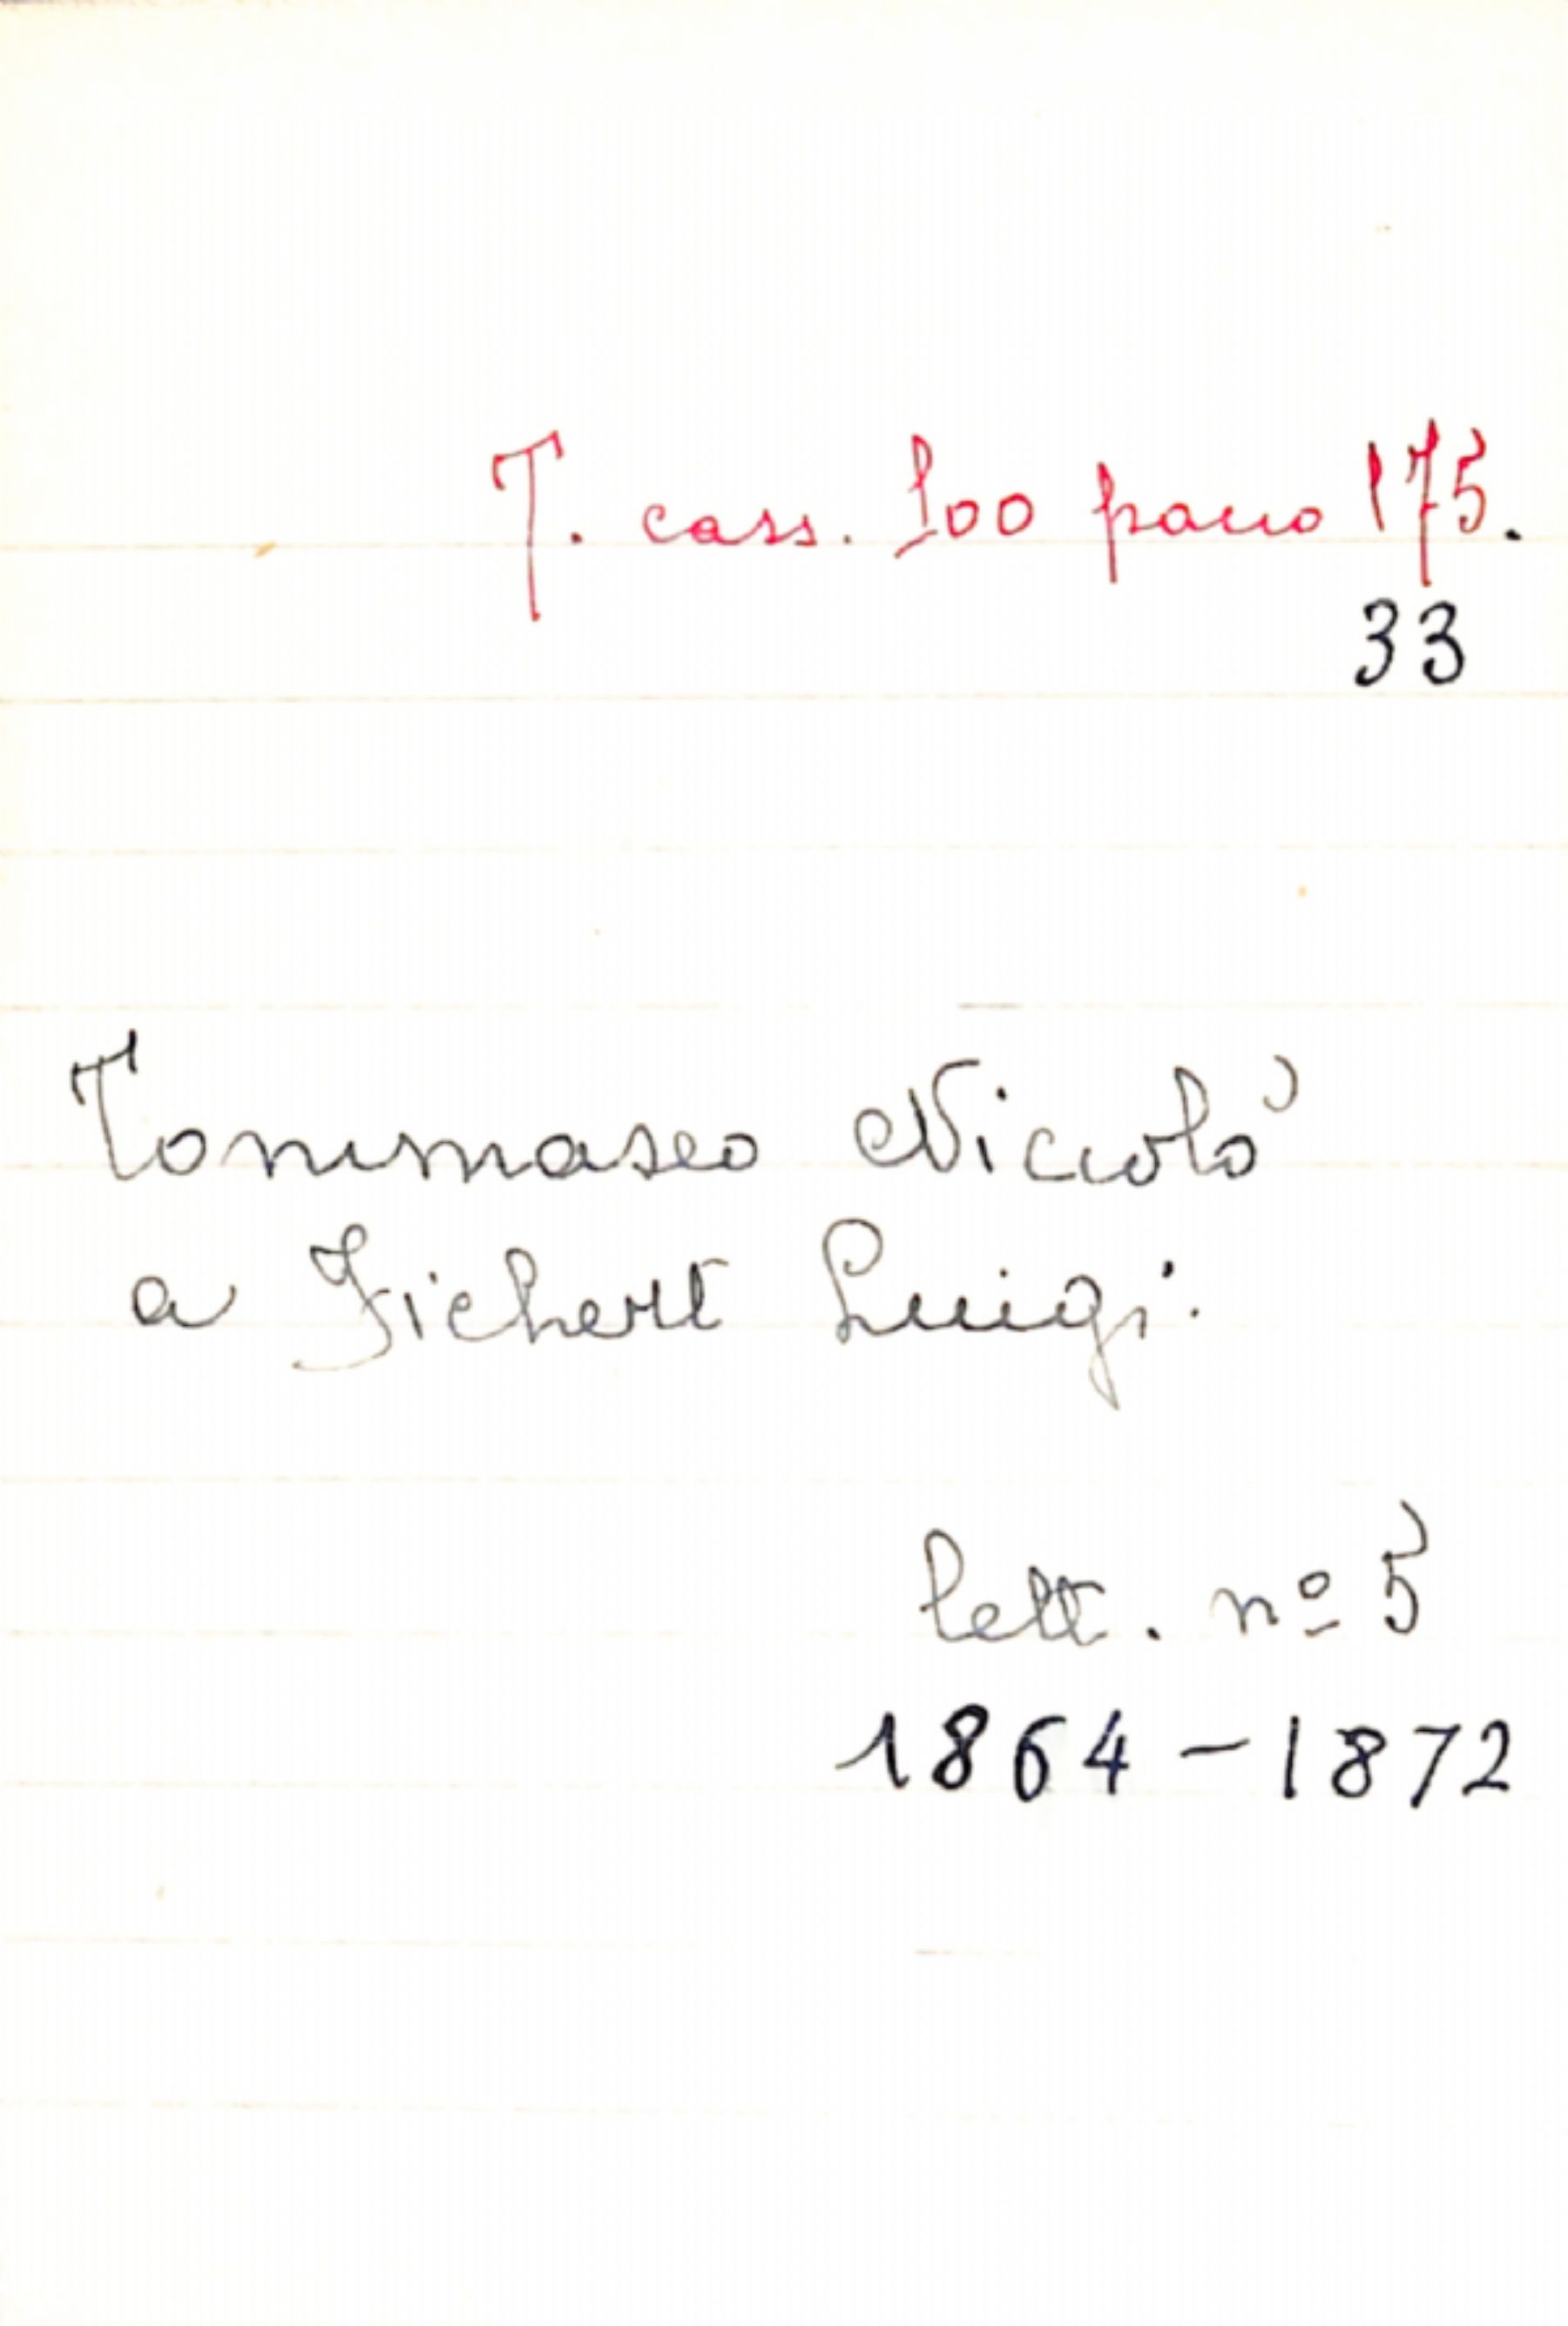 T. cass. 100 pacco 175.
33
Tommaseo Niccolò
a Fichert Luigi.
lett. nº 5
1864-1872